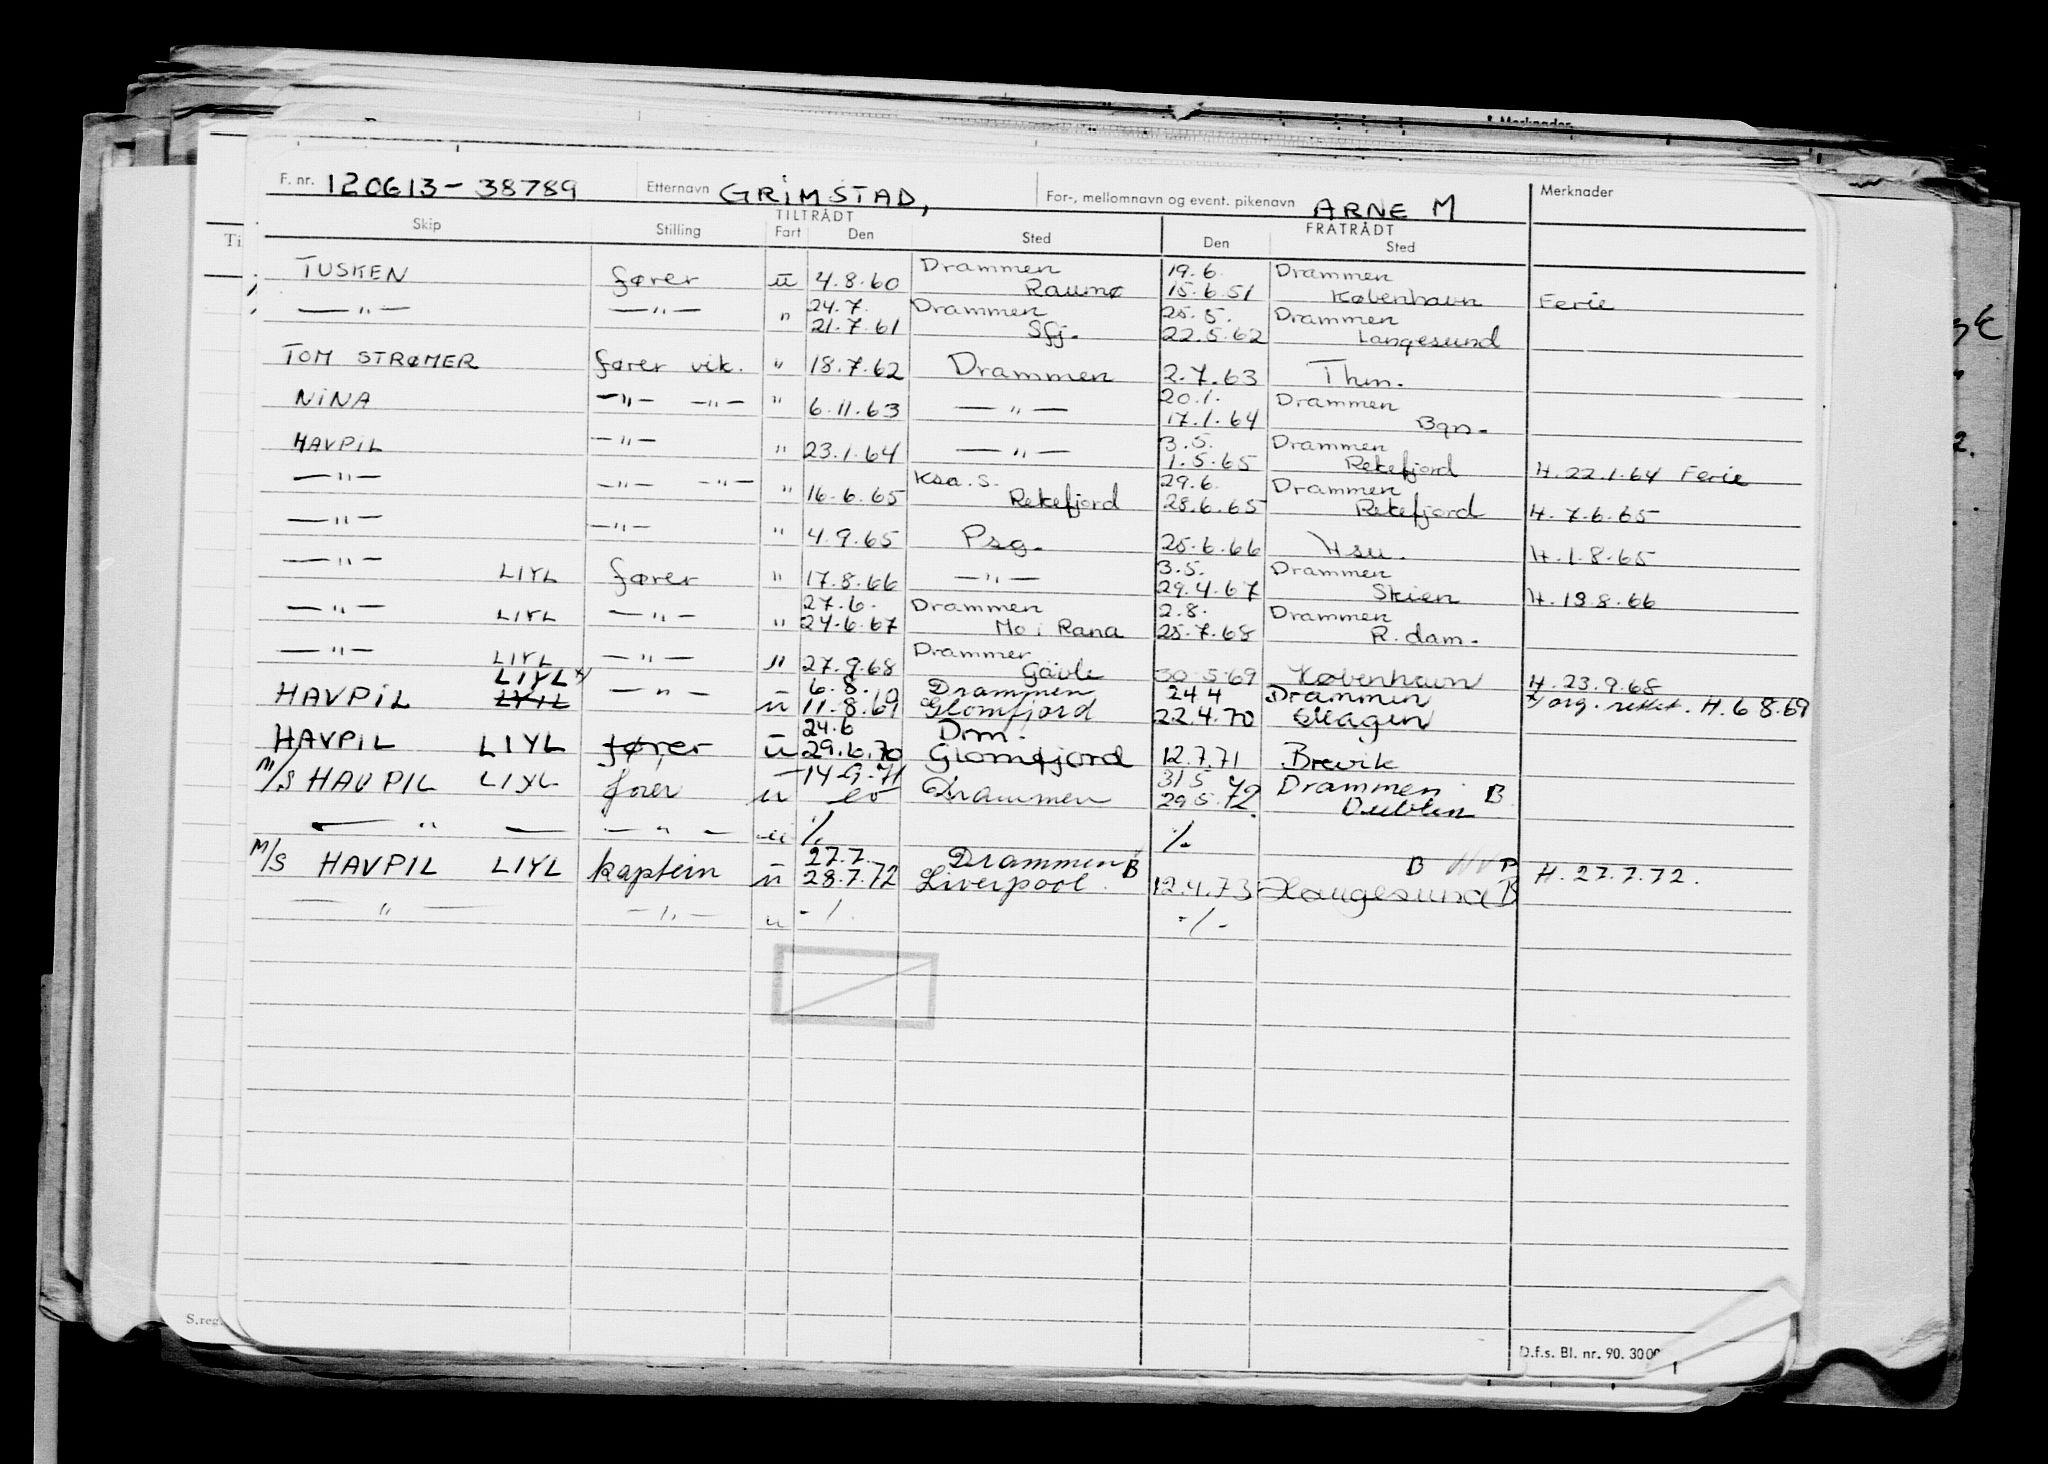 Merknader
F. nr. 120613-38789 Etternavn GRIMSTAD, For-, mellomnavn og event. pikenavn ARNE M Merknader
TILTRÅDT FRATRÅDT
Skip Stilling Fart Den Sted Den Sted
Drammen 19.6. Drammen
TUSKEN fører u 4.8.60 Raumø 15.6.51 København Ferie
24.7. Drammen 25.5. Drammen
—"— —"— " 21.7.61 Sfj. 22.5.62 Langesund
TOM STRØMER fører vik. " 18.7.62 Drammen 2.7.63 Thm.
20.1. Drammen
NINA —"— —"— " 6.11.63 —"— 17.1.64 Bgn.
3.5. Drammen
HAVPIL —"— " 23.1.64 —"— 1.5.65 Rekefjord H. 22.1.64 Ferie
Ksa. S. 29.6. Drammen
—"— —"— —"— " 16.6.65 Rekefjord 28.6.65 Rekefjord H. 7.6.65
—"— —"— " 4.9.65 Psg. 25.6.66 Hsu. H. 1.8.65
3.5. Drammen
—"— LIYL fører " 17.8.66 —"— 29.4.67 Skien H. 19.8.66
27.6. Drammen 2.8. Drammen
—"— LIYL —"— " 24.6.67 Mo i Rana 25.7.68 R.dam.
Drammen
—"— LIYL —"— " 27.9.68 Gävle 30.5.69 København H. 23.9.68
LIYL x) 6.8. Drammen 24.4 Drammen
HAVPIL LYIL —"— u 11.8.69 Glomfjord 22.4.70 Skagen x) org. rettet. H. 6 8.69
24.6 Drm.
HAVPIL LIYL fører u 29.6.70 Glomfjord 12.7.71 Brevik
14.9.71 31 5 72 Drammen B
M/S HAVPIL LIYL fører u Drammen 29.5.72. Dublin
— " — — " — u ./. ./.
27.7. Drammen B B
M/S HAVPIL LIYL kaptein u 28.7.72 Liverpool 12.4.73 Haugesund B H. 27.7.72.
— " — —"— u -/. -/-
S.reg.
D.f.s. Bl. nr. 90. 3000